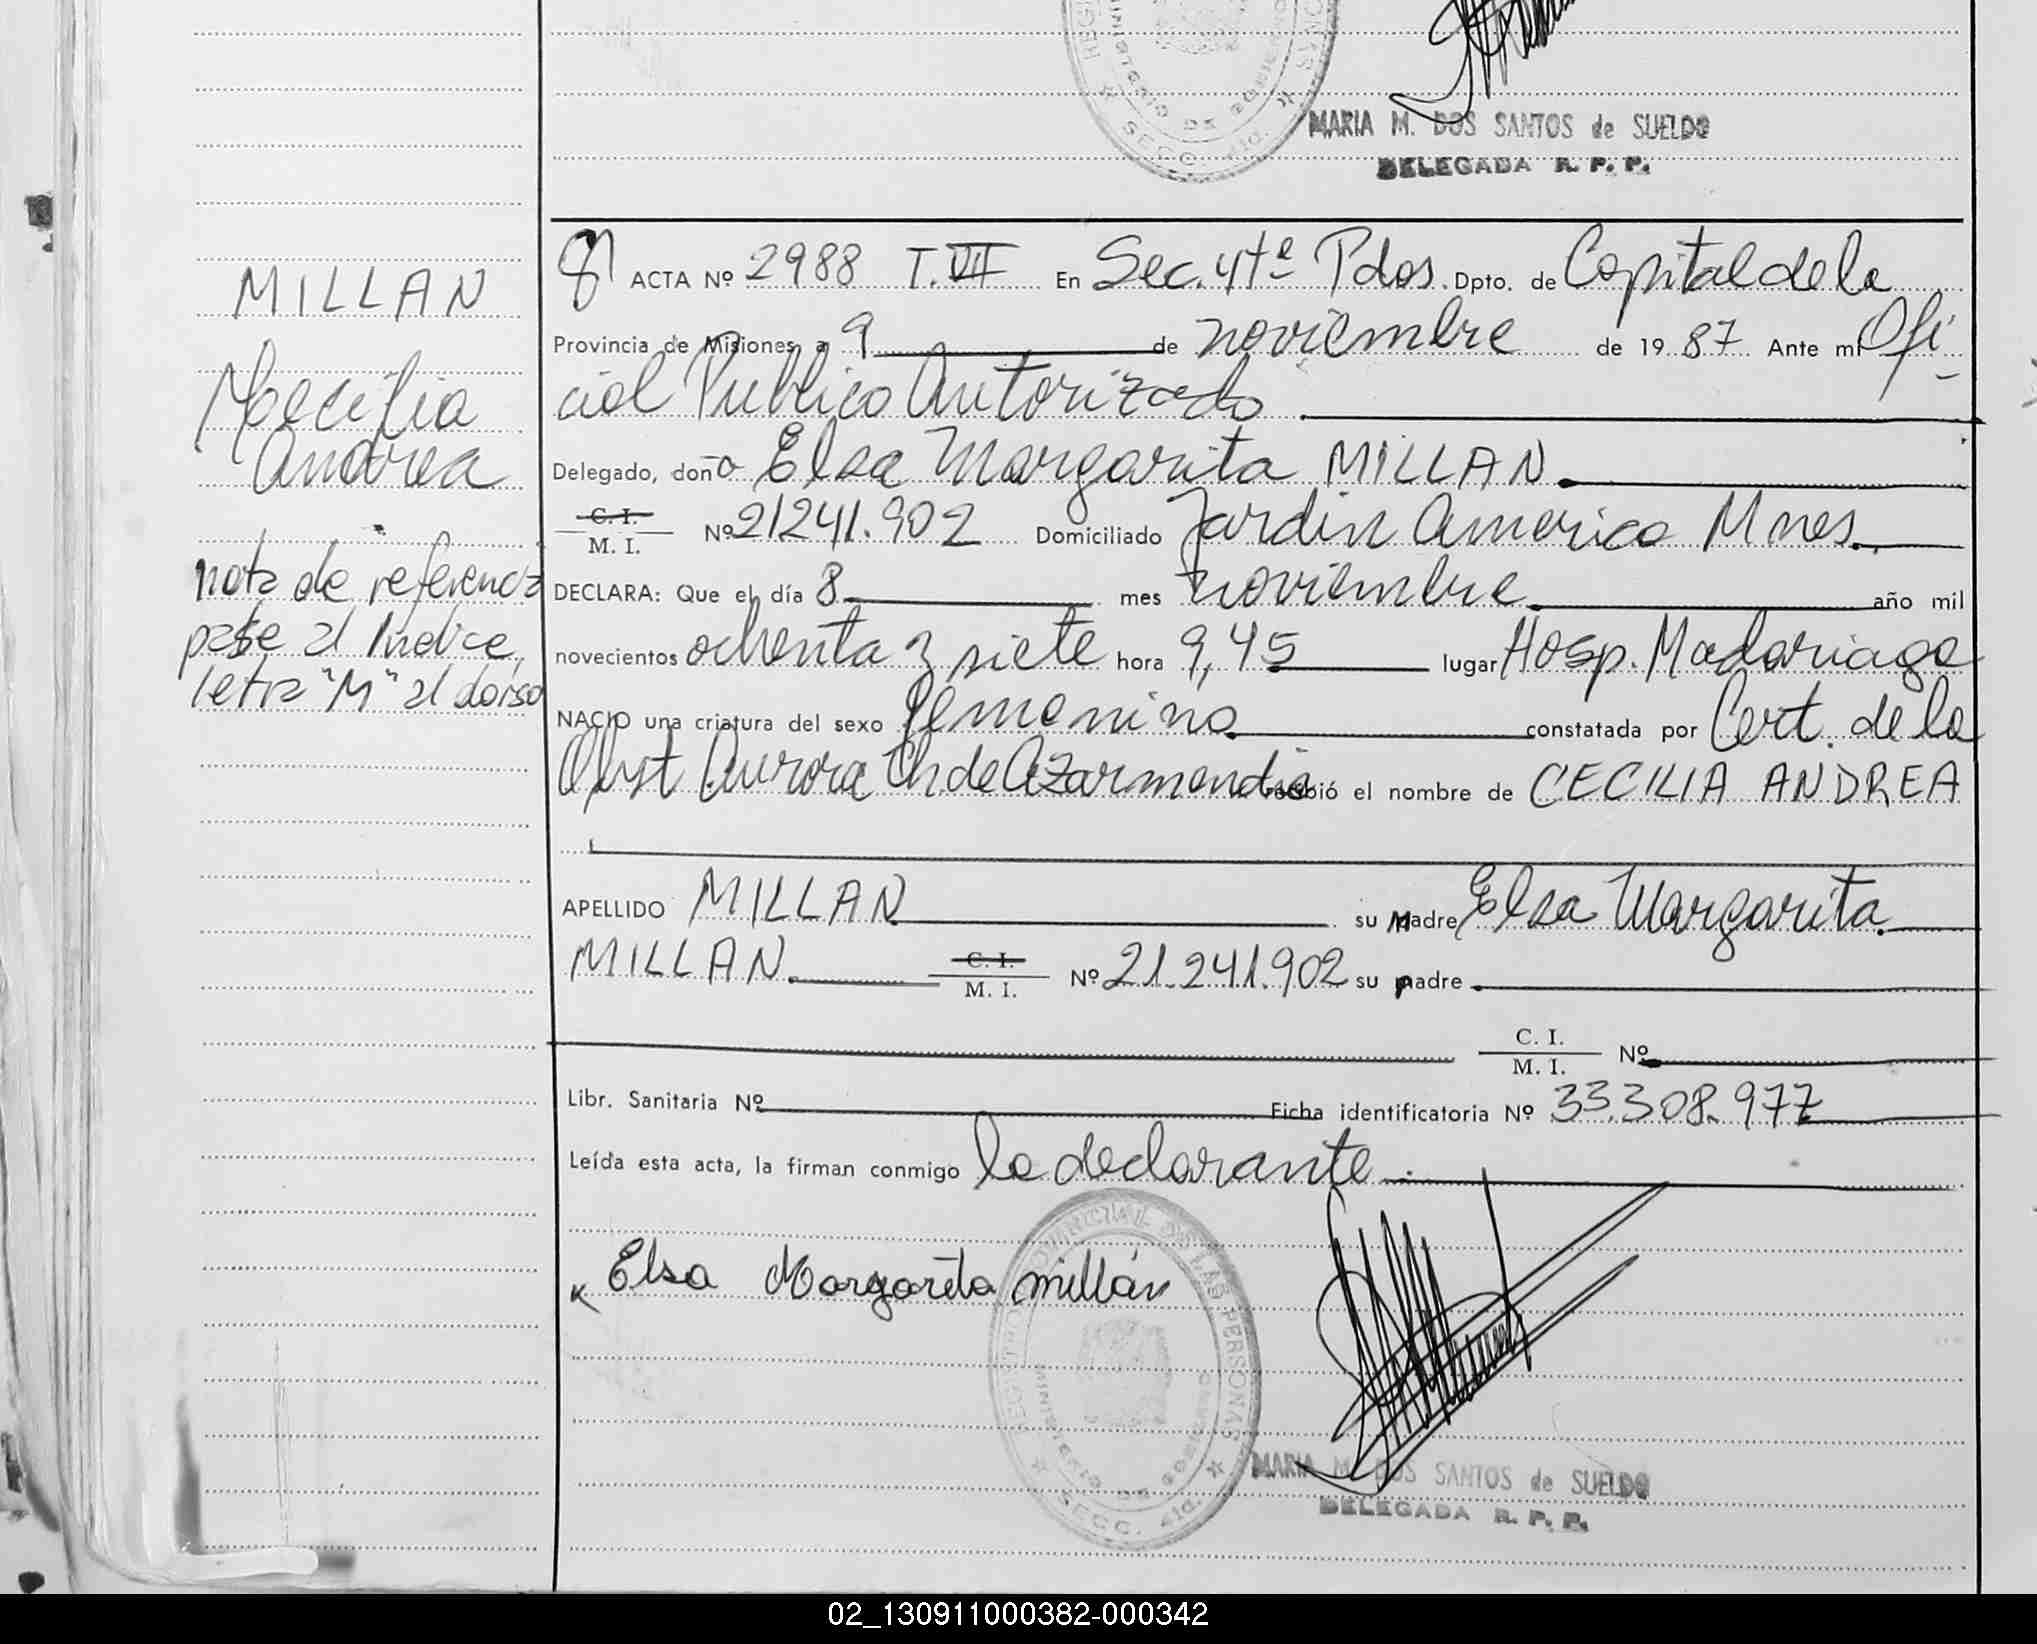 MARIA M. DOS SANTOS de SUELDO
DELEGADA R. P. P.
SECC. 4ta.
MILLAN
Cecilia
Andrea
nota de referencia
pase al Indice,
letra "M" al dorso
ACTA Nº 2988 T. VII En Sec. 4tª Pdos. Dpto. de Capital de la
Provincia de Misiones a 9 de noviembre de 19 87 Ante mi Ofi-
cial Publico Autorizado
Delegado, doña Elsa Margarita MILLAN
C. I.
M. I. Nº 21241.902 Domiciliado Jardin America Mnes.
DECLARA: Que el día 8 mes noviembre año mil
novecientos ochenta y siete hora 9,45 lugar Hosp. Madariaga
NACIO una criatura del sexo femenino constatada por Cert. de la
Obst Aurora Ch. de Azarmendia recibió el nombre de CECILIA ANDREA
APELLIDO MILLAN su Madre Elsa Margarita
MILLAN C. I.
M. I. Nº 21.241.902 su padre
C. I.
M. I. Nº
Libr. Sanitaria Nº Ficha identificatoria Nº 33.308.977
Leída esta acta, la firman conmigo la declarante
Elsa Margarita Millán
REGISTRO PROVINCIAL DE LAS PERSONAS
MINISTERIO DE GOBIERNO
SECC. 4ta.
MARIA M. DOS SANTOS de SUELDO
DELEGADA R. P. P.
02_130911000382-000342